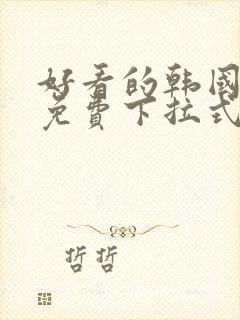 好看的韩国
免費下拉式
哲哲